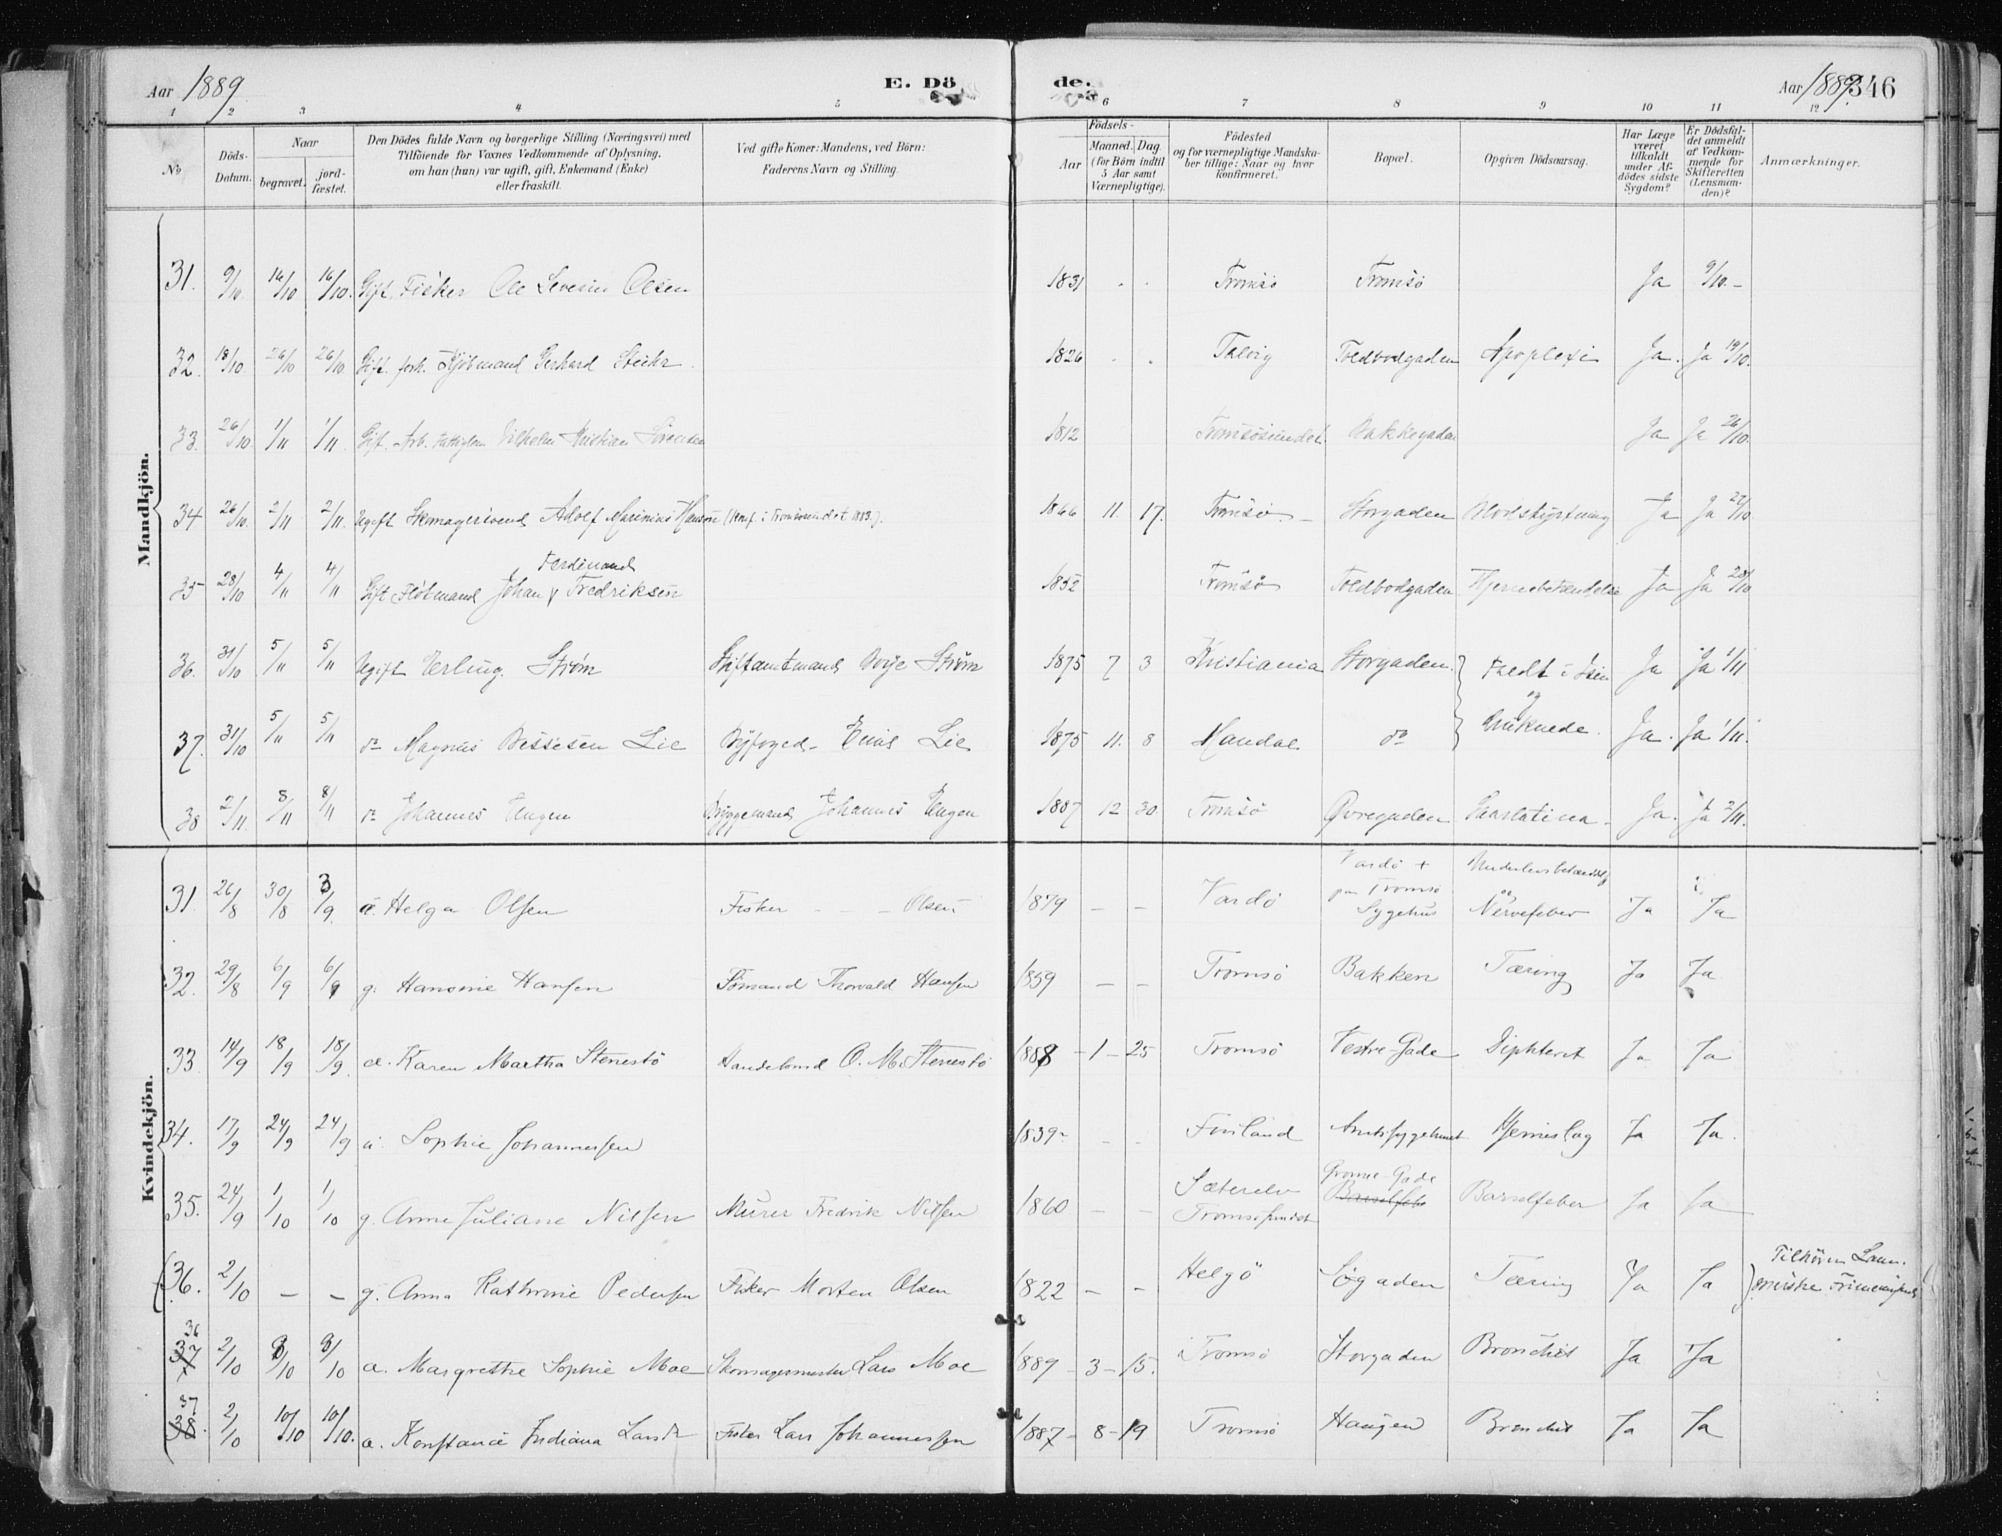 Aar 1889
E. Döde.
Aar 1889. 346
1 2 3 4 5 6 7 8 9 10 11 12
No.
Döds-Datum.
Naar
begravet.
jord-fæstet.
Den Dödes fulde Navn og borgerlige Stilling (Næringsvei) med
Tilföiende for Voxnes Vedkommende af Oplysning,
om han (hun) var ugift, gift, Enkemand (Enke)
eller fraskilt.
Ved gifte Koner: Mandens, ved Börn:
Faderens Navn og Stilling.
Födsels-
Aar
Maaned. Dag
(for Börn indtil
5 Aar samt
Værnepligtige).
Födested
og for værnepligtige Mandska-
ber tillige: Naar og hvor
konfirmeret.
Bopæl.
Opgiven Dödsaarsag.
Har Læge
været
tilkaldt
under Af-
dödes sidste
Sygdom?
Er Dödsfal-
det anmeldt
af Vedkom-
mende for
Skifteretten
(Lensman-
den)?
Anmærkninger.
Mandkjön.
31. 9/10. 16/10 16/10. Gift Fisker Ole Severin Olsen 1831 . . Tromsö Tromsö Ja 9/10.-
32. 18/10 26/10 26/10 Gift. forh. Kjöbmand Gerhard Stuhr. 1826 . . Talvig Toldbodgaden Apoplexi Ja. Ja 19/10.
33. 26/10. 1/11 1/11. Gift. Arb. Vilhelm Kristian Sörensen 1812 Tromsösundet. Bakkegaden Ja Ja 26/10.
34 26/10. 2/11 2/11. Ugift Skomagersvend Adolf Marinius Hansen (Konf. i Tromsösundet 1883.). 1866 11. 17. Tromsö.- Storgaden Blodstyrtning Ja Ja 27/10.
Ferdinand
35 28/10 4/11 4/11 Gift Flötmand Johan Fredriksen 1852 Tromsö Toldbodgaden Hjernebetændelse Ja Ja 28/10
36. 31/10 5/11 5/11 Ugift Erling Ström Stiftamtmand Boye Ström 1875 7 3 Kristiania Storgaden. Faldt i Isen Ja Ja 1/11
og
37. 31/10 5/11 5/11 do Magnus Bessesen Lie Byfoged Emil Lie 1875 11. 8 Mandal do druknede. Ja. Ja 1/11.
38 2/11. 8/11 8/11 do Johannes Ungen Byggemand Johannes Ungen 1887 12 30. Tromsö Övregaden Skarlatina. Ja. Ja 2/11.
Kvindekjön.
Vardö + Underlivsbetændelse
31. 26/8 30/8 3/9. u. Helga Olsen Fisker - - - Olsen 1879 - - Vardö paa Tromsö og
Sygehus Nervefeber Ja Ja
32. 29/8 6/9 6/9 g. Hansine Hansen Formand Thorvald Hansen 1859 - - Tromsö Bakken Tæring Ja Ja
33. 14/9 18/9 18/9. u. Karen Martha Stenesö Handelsmd O. M. Stenesö 1888 - 1 - 25 Tromsö Vestre Gade Diphterit Ja Ja
34. 17/9 24/9 24/9 u. Sophie Johannesen 1839- - - Finland Amtssygehuset Hjerneslag Ja Ja.
Sæterelv Grönne Gade
35. 24/9 1/10 1/10 g. Anne Juliane Nilsen Murer Fredrik Nilsen 1860 - - Tromsösundet Barselfeber Ja Ja
36. 2/10 - - g. Anna Kathrine Pedersen Fisker Morten Olsen 1822 - - Helgö Sögaden Tæring Ja Ja Tilhörer Læm-
36
37 2/10 8/10 8/10 u. Margrethe Sophie Moe Skomagermester Lars Moe 1889 - 3 - 15. Tromsö Storgaden Bronchit Ja Ja
37
38. 2/10 10/10 10/10. u. Konstance Indiana Larsdr Fisker Lars Johannessen 1887 - 8 - 19 Tromsö Haugen Bronchit Ja Ja